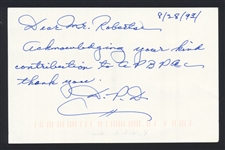 8/28/93
Dear Mr. Robertson
Acknowledging your kind
contribution to PBPac
thank you.